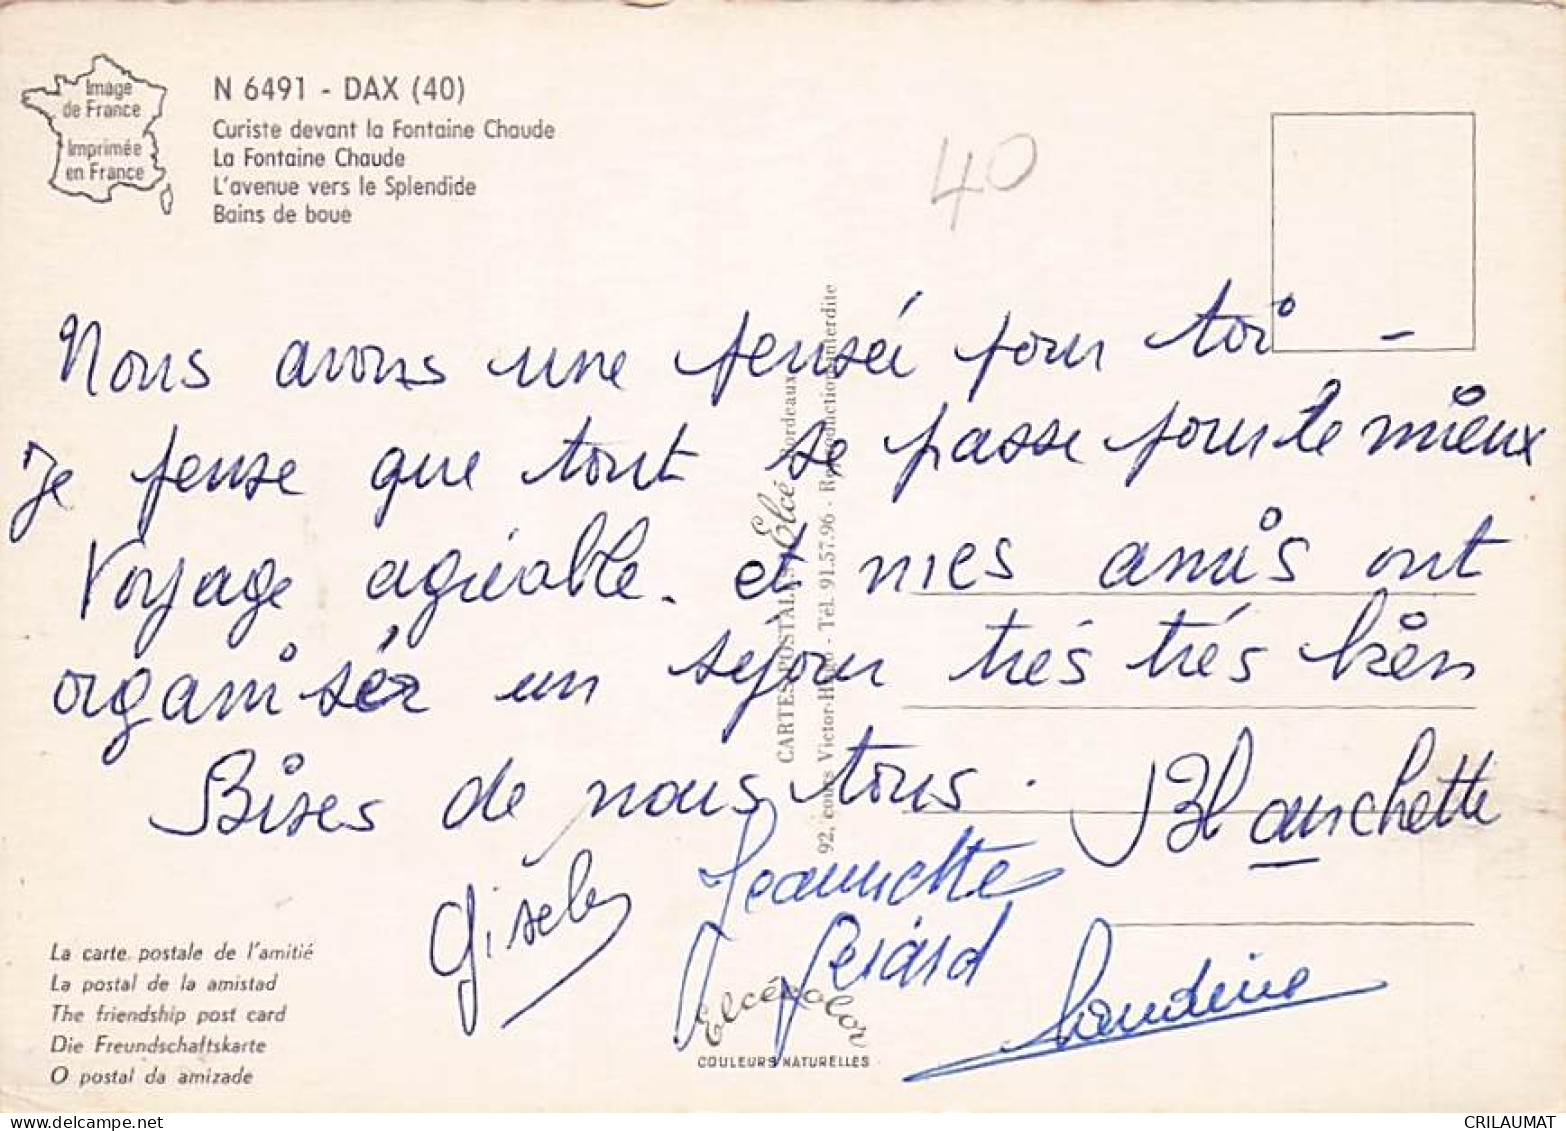 Image
de France
Imprimée
en France
N 6491 - DAX (40)
Curiste devant la Fontaine Chaude
La Fontaine Chaude
L'avenue vers le Splendide
Bains de boue
40
Nous avons une pensée pour toi -
Je pense que tout se passe pour le mieux
Voyage agréable. et mes amis ont
organisér un séjour trés trés bien
Bises de nous tous. Blanchette
Gisele
Jeannette
Gérard
Claudine
CARTES POSTALES Elcé Bordeaux
92, cours Victor-Hugo - Tél. 91.57.96 - Reproduction interdite
La carte postale de l'amitié
La postal de la amistad
The friendship post card
Die Freundschaftskarte
O postal da amizade
Elcécolor
COULEURS NATURELLES
www.delcampe.net
CRILAUMAT